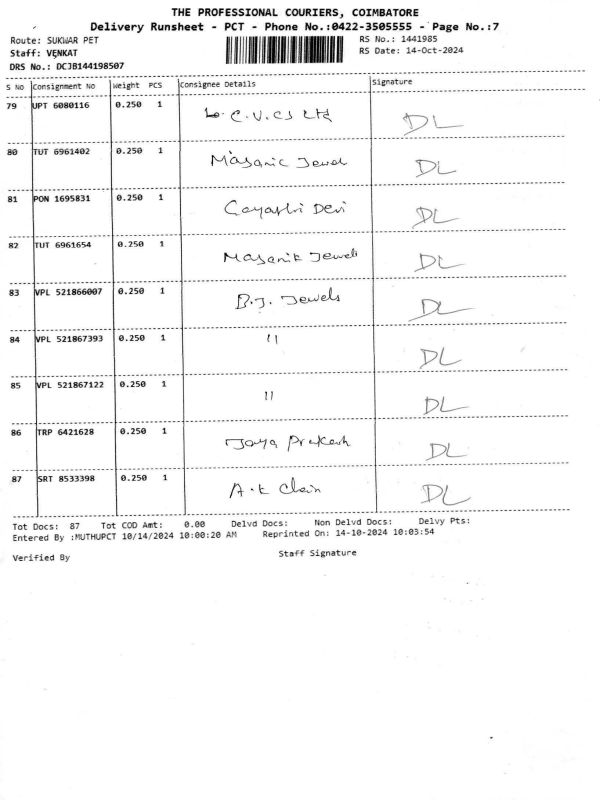 THE PROFESSIONAL COURIERS, COIMBATORE
Delivery Runsheet - PCT - Phone No.:0422-3505555 - Page No.:7
Route: SUKWAR PET RS No.: 1441985
Staff: VENKAT RS Date: 14-Oct-2024
DRS No.: DCJB144198507
S No Consignment No Weight PCS Consignee Details Signature
79 UPT 6080116 0.250 1 C.V.CS Ltd DL
80 TUT 6961402 0.250 1 Masanic Jewel DL
81 PON 1695831 0.250 1 Gayathri Devi DL
82 TUT 6961654 0.250 1 Masanik Jewels DL
83 VPL 521866007 0.250 1 B.J. Jewels DL
84 VPL 521867393 0.250 1 " DL
85 VPL 521867122 0.250 1 " DL
86 TRP 6421628 0.250 1 Jaya Prakash DL
87 SRT 8533398 0.250 1 A.K Chain DL
Tot Docs: 87 Tot COD Amt: 0.00 Delvd Docs: Non Delvd Docs: Delvy Pts:
Entered By :MUTHUPCT 10/14/2024 10:00:20 AM Reprinted On: 14-10-2024 10:03:54
Verified By Staff Signature